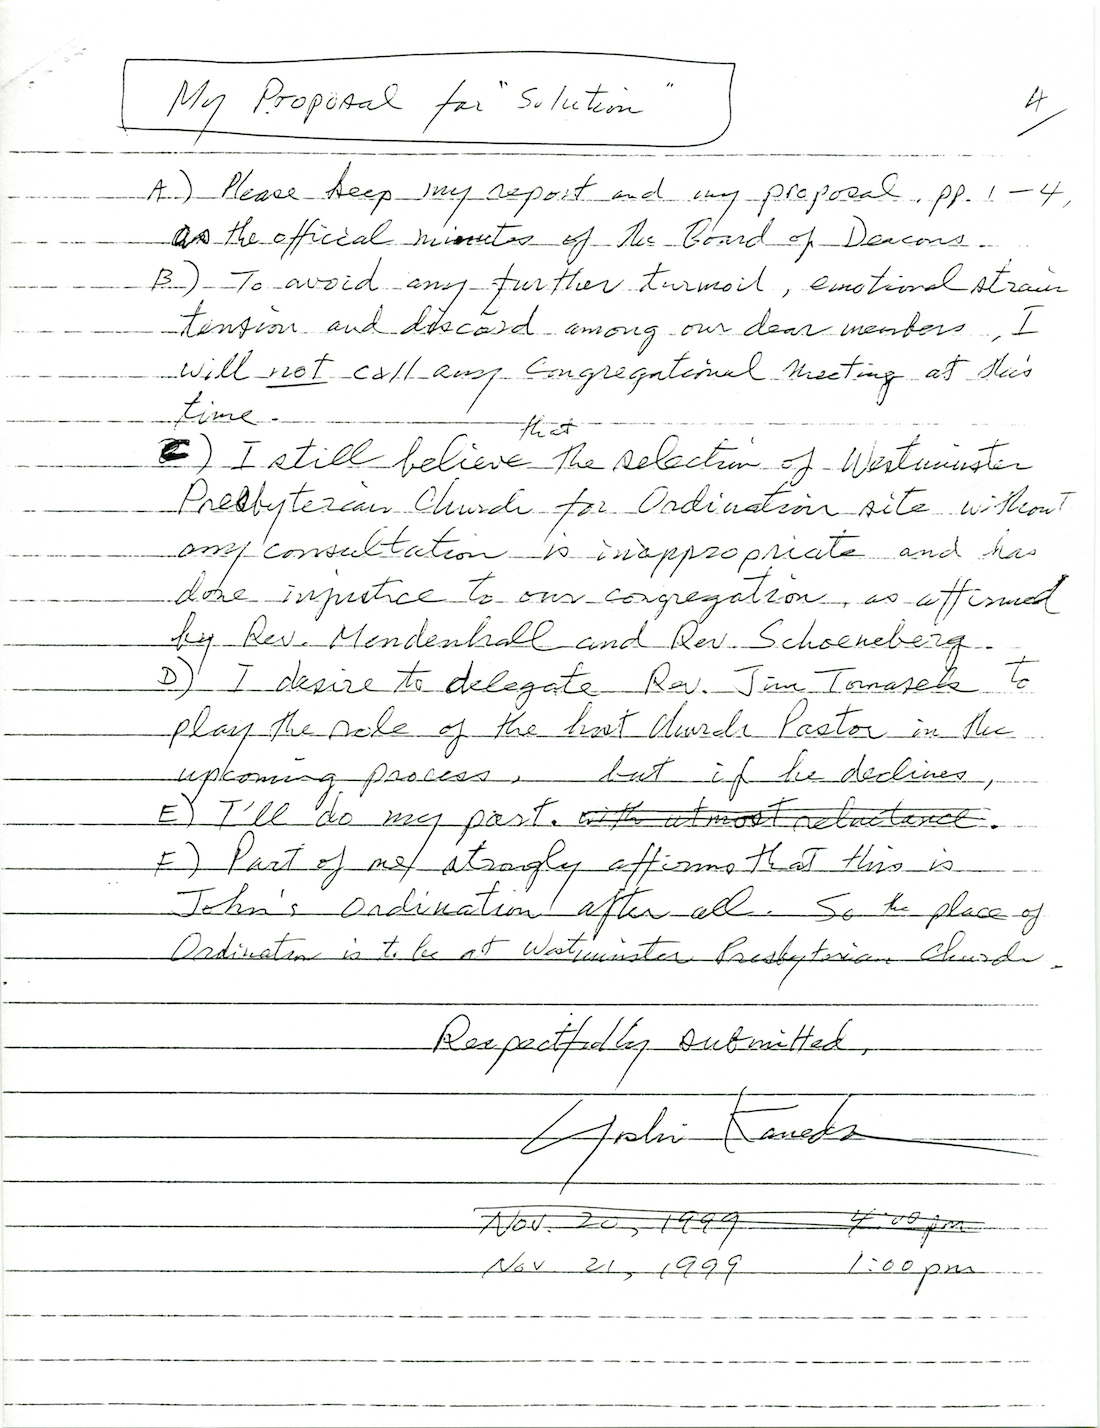 My Proposal for "Solution"
4
A.) Please keep my report and my proposal, pp. 1-4,
as the official minutes of the Board of Deacons.
B.) To avoid any further turmoil, emotional strain
tension and discord among our dear members, I
will not call any Congregational Meeting at this
time.
that
C) I still believe the selection of Westminster
Presbyterian Church for Ordination site without
any consultation is inappropriate and has
done injustice to our congregation, as affirmed
by Rev. Mendenhall and Rev. Schoeneberg.
D) I desire to delegate Rev. Jim Tomasek to
play the role of the host Church Pastor in the
upcoming process, but if he declines,
E) I'll do my part. with utmost reluctance.
F) Part of me strongly affirms that this is
John's Ordination after all. So the place of
Ordination is to be at Westminster Presbyterian Church.
Respectfully submitted,
Yoshi Kaneda
Nov. 20, 1999 4:00 pm
Nov 21, 1999 1:00 pm